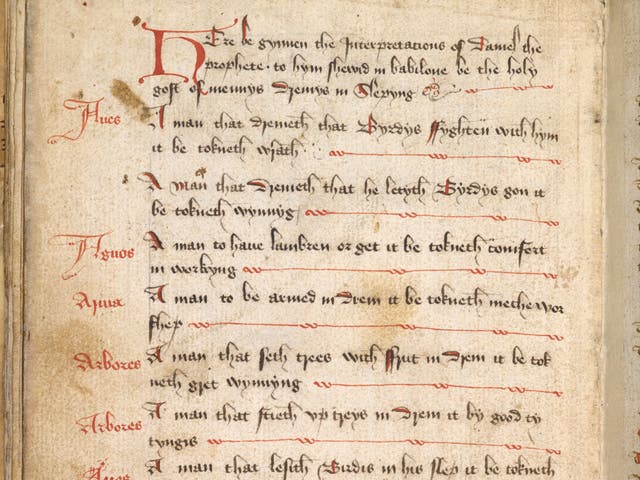 HEre be gynnen the Interpretations of Daniel the
prophete · to hym shewid in babilone be the holy
gost of mennys dremys in Sleping
Aues
A man that dremeth that Byrdys ffyghten with hym
it be tokneth wrath
A man that dremeth that he letyth Byrdys gon it
be tokneth wynnyg
Agnos
A man to haue lambren or get it be tokneth comfert
in workyng
Arma
A man to be armed in drem it be tokneth meche wor
shep
Arbores
A man that seth trees with ffrut in drem it be tok
neth gret wynnyng
Arbores
A man that stieth vp treys in drem it by good ty
tyngis
Aues
A man that lesith Birdis in his slep it be tokneth